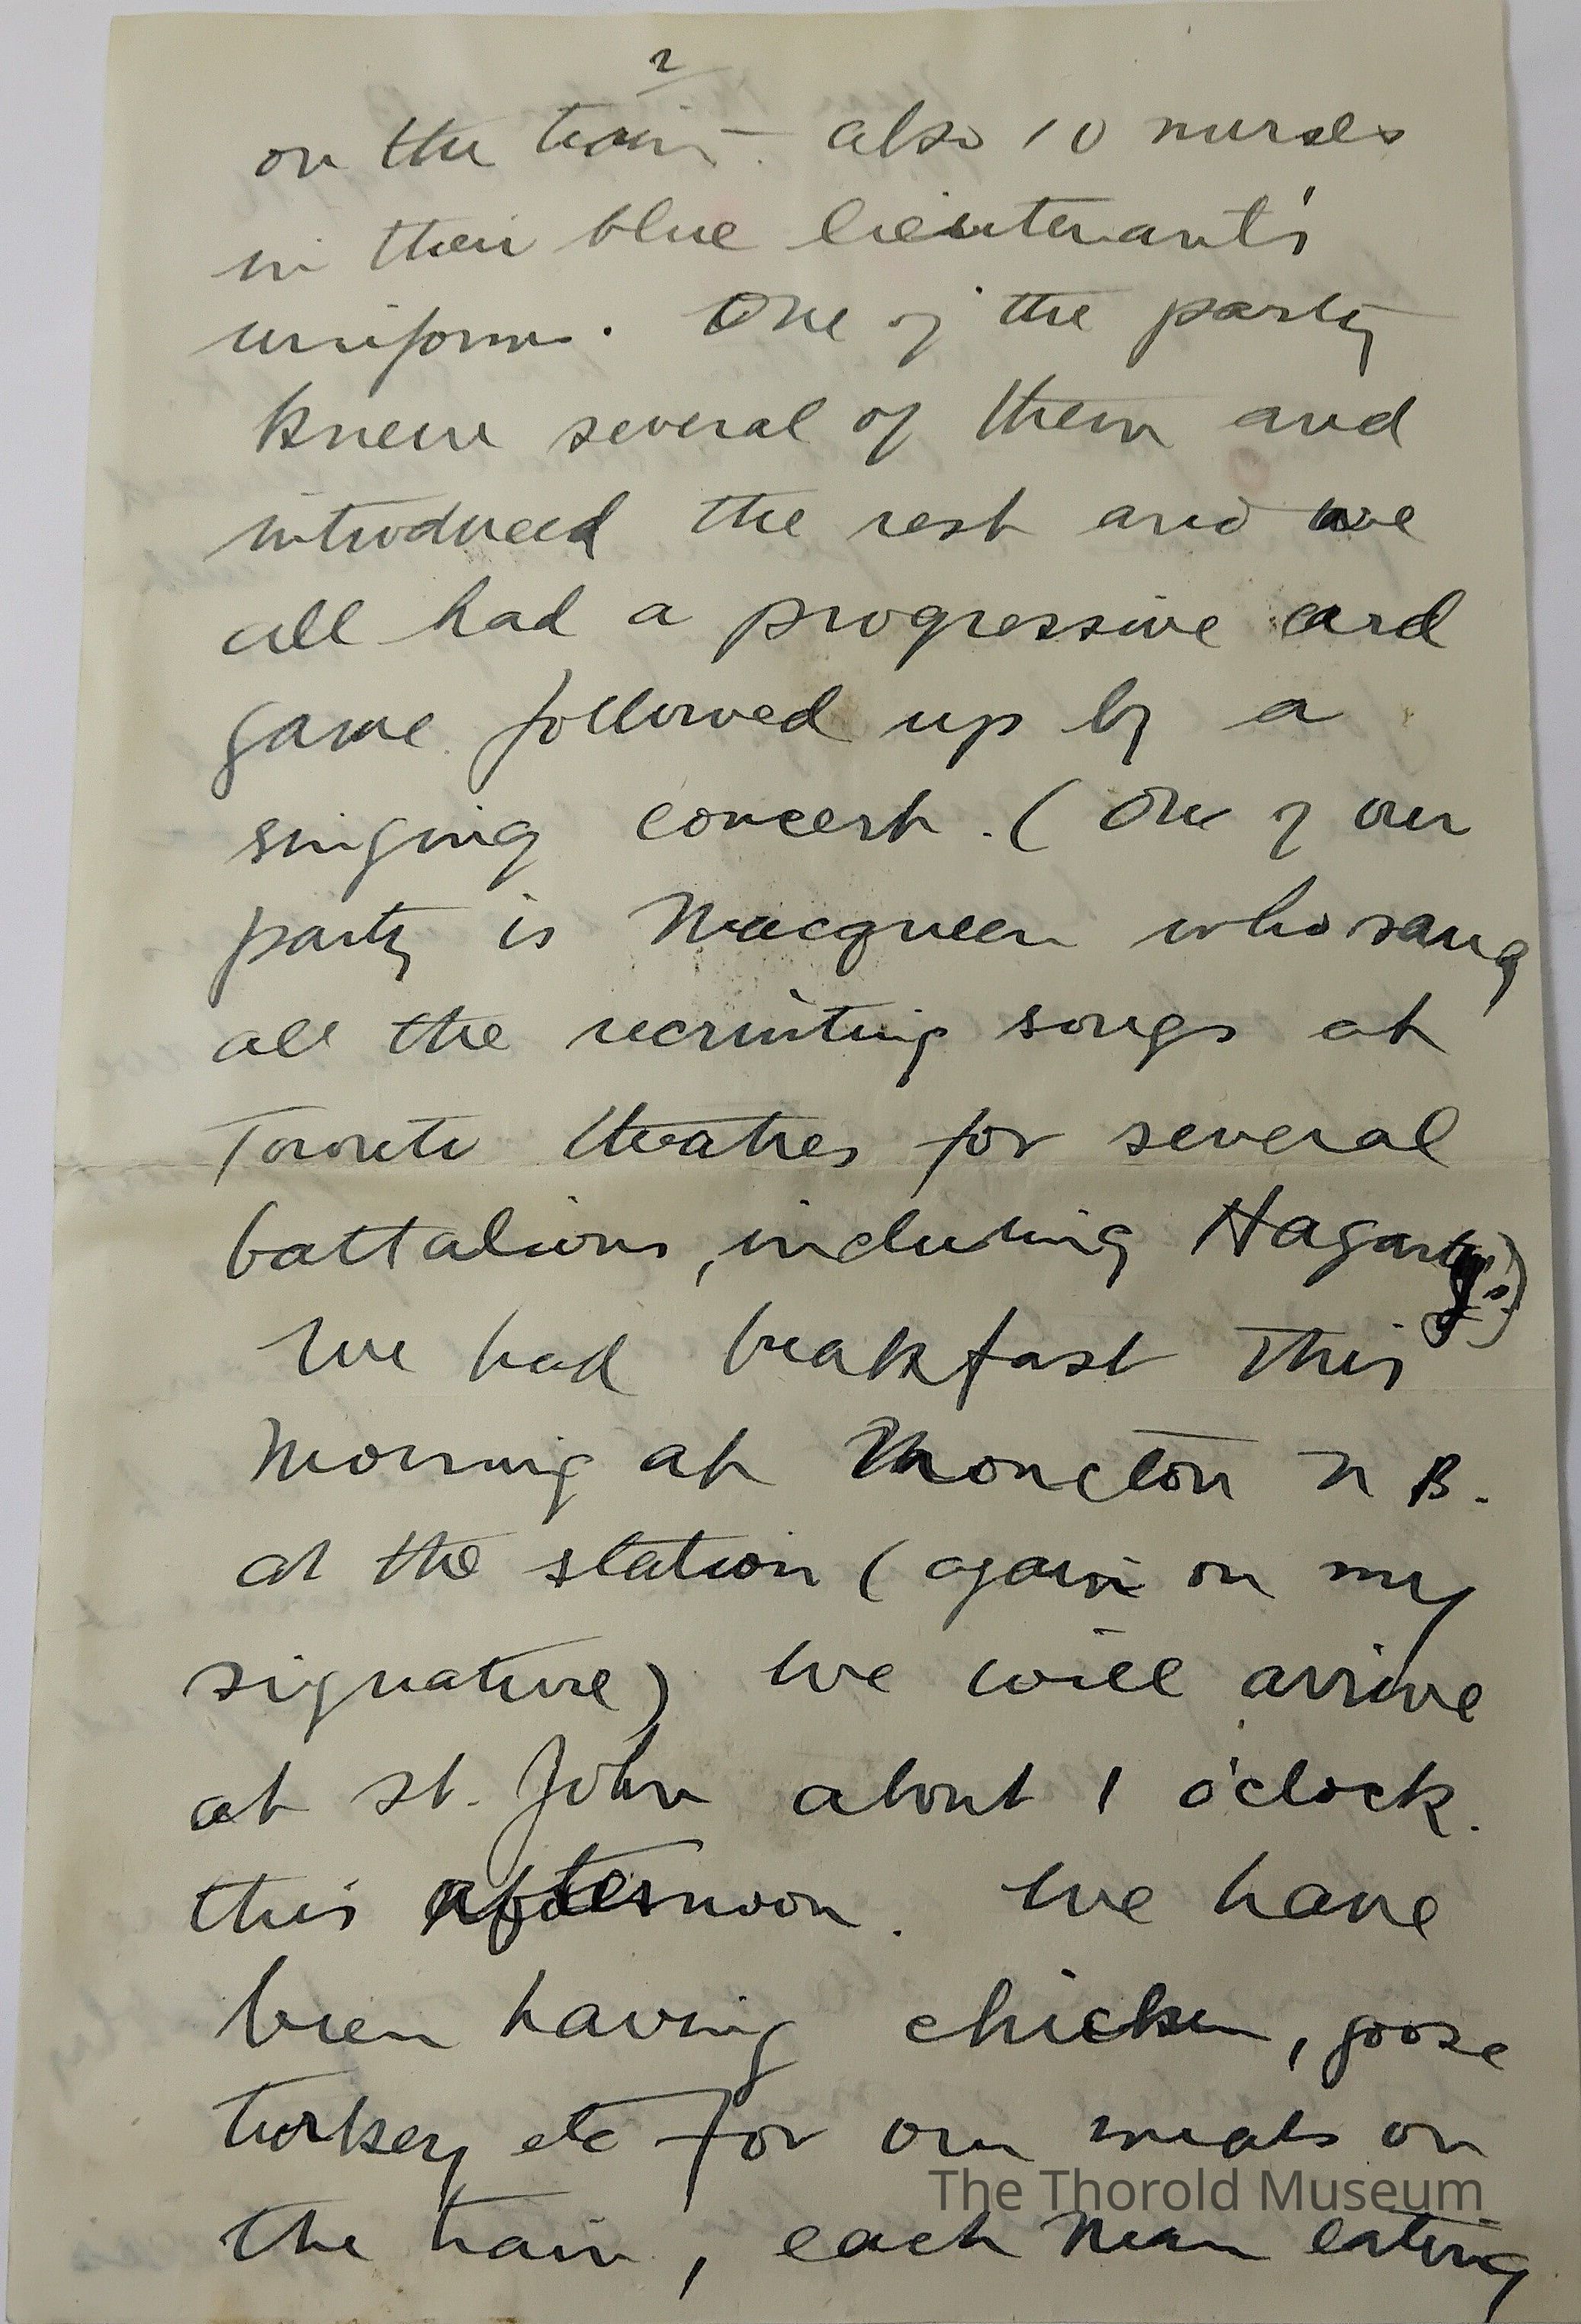 2
on the train - also 10 nurses
in their blue lieutenant's
uniforms. One of the party
knew several of them and
introduced the rest and we
all had a progressive card
game followed up by a
singing concert. (One of our
party is Macqueen who sang
all the recruiting songs at
Toronto theatres for several
battalions, including Hagarty's)
We had breakfast this
morning at Moncton N B.
at the station (again on my
signature) We will arrive
at St. John about 1 o'clock.
this afternoon. We have
been having chicken, goose
turkey etc for our meals on
The Thorold Museum
the train, each man eating